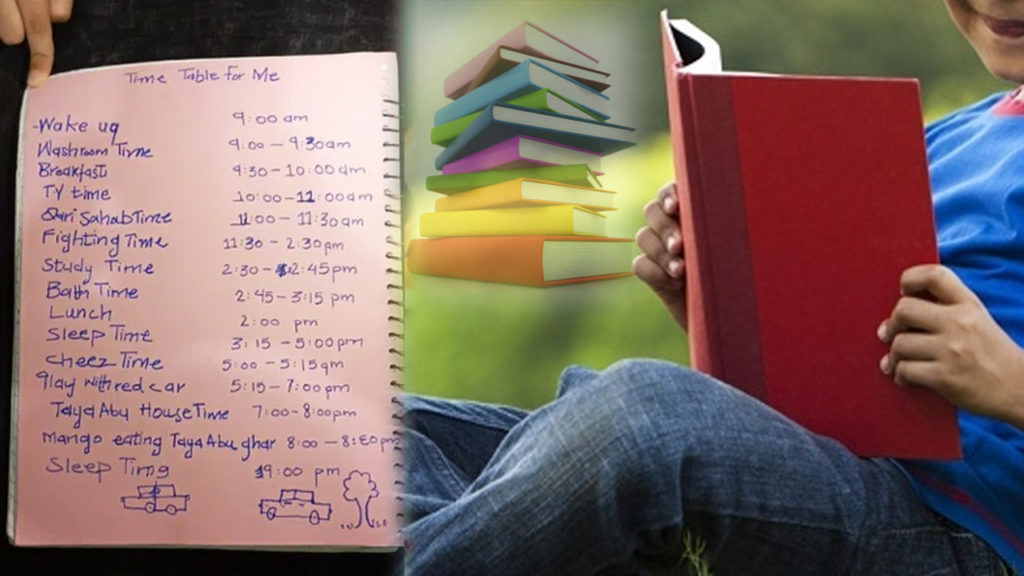 Time Table for Me
-Wake up 9:00 am
Washroom Time 9:00 - 9:30am
Breakfast 9:30 - 10:00 am
TV time 10:00-11:00am
Qari Sahab Time 11:00 - 11:30am
Fighting Time 11:30 - 2:30pm
Study Time 2:30 - 2:45pm
Bath Time 2:45 - 3:15 pm
Lunch 2:00 pm
Sleep Time 3:15 - 5:00pm
Cheez Time 5:00 - 5:15am
Play with red car 5:15 - 7:00pm
Taya Abu House Time 7:00-8:00pm
Mango eating Taya Abu ghar 8:00 - 8:30pm
Sleep Time 9:00 pm